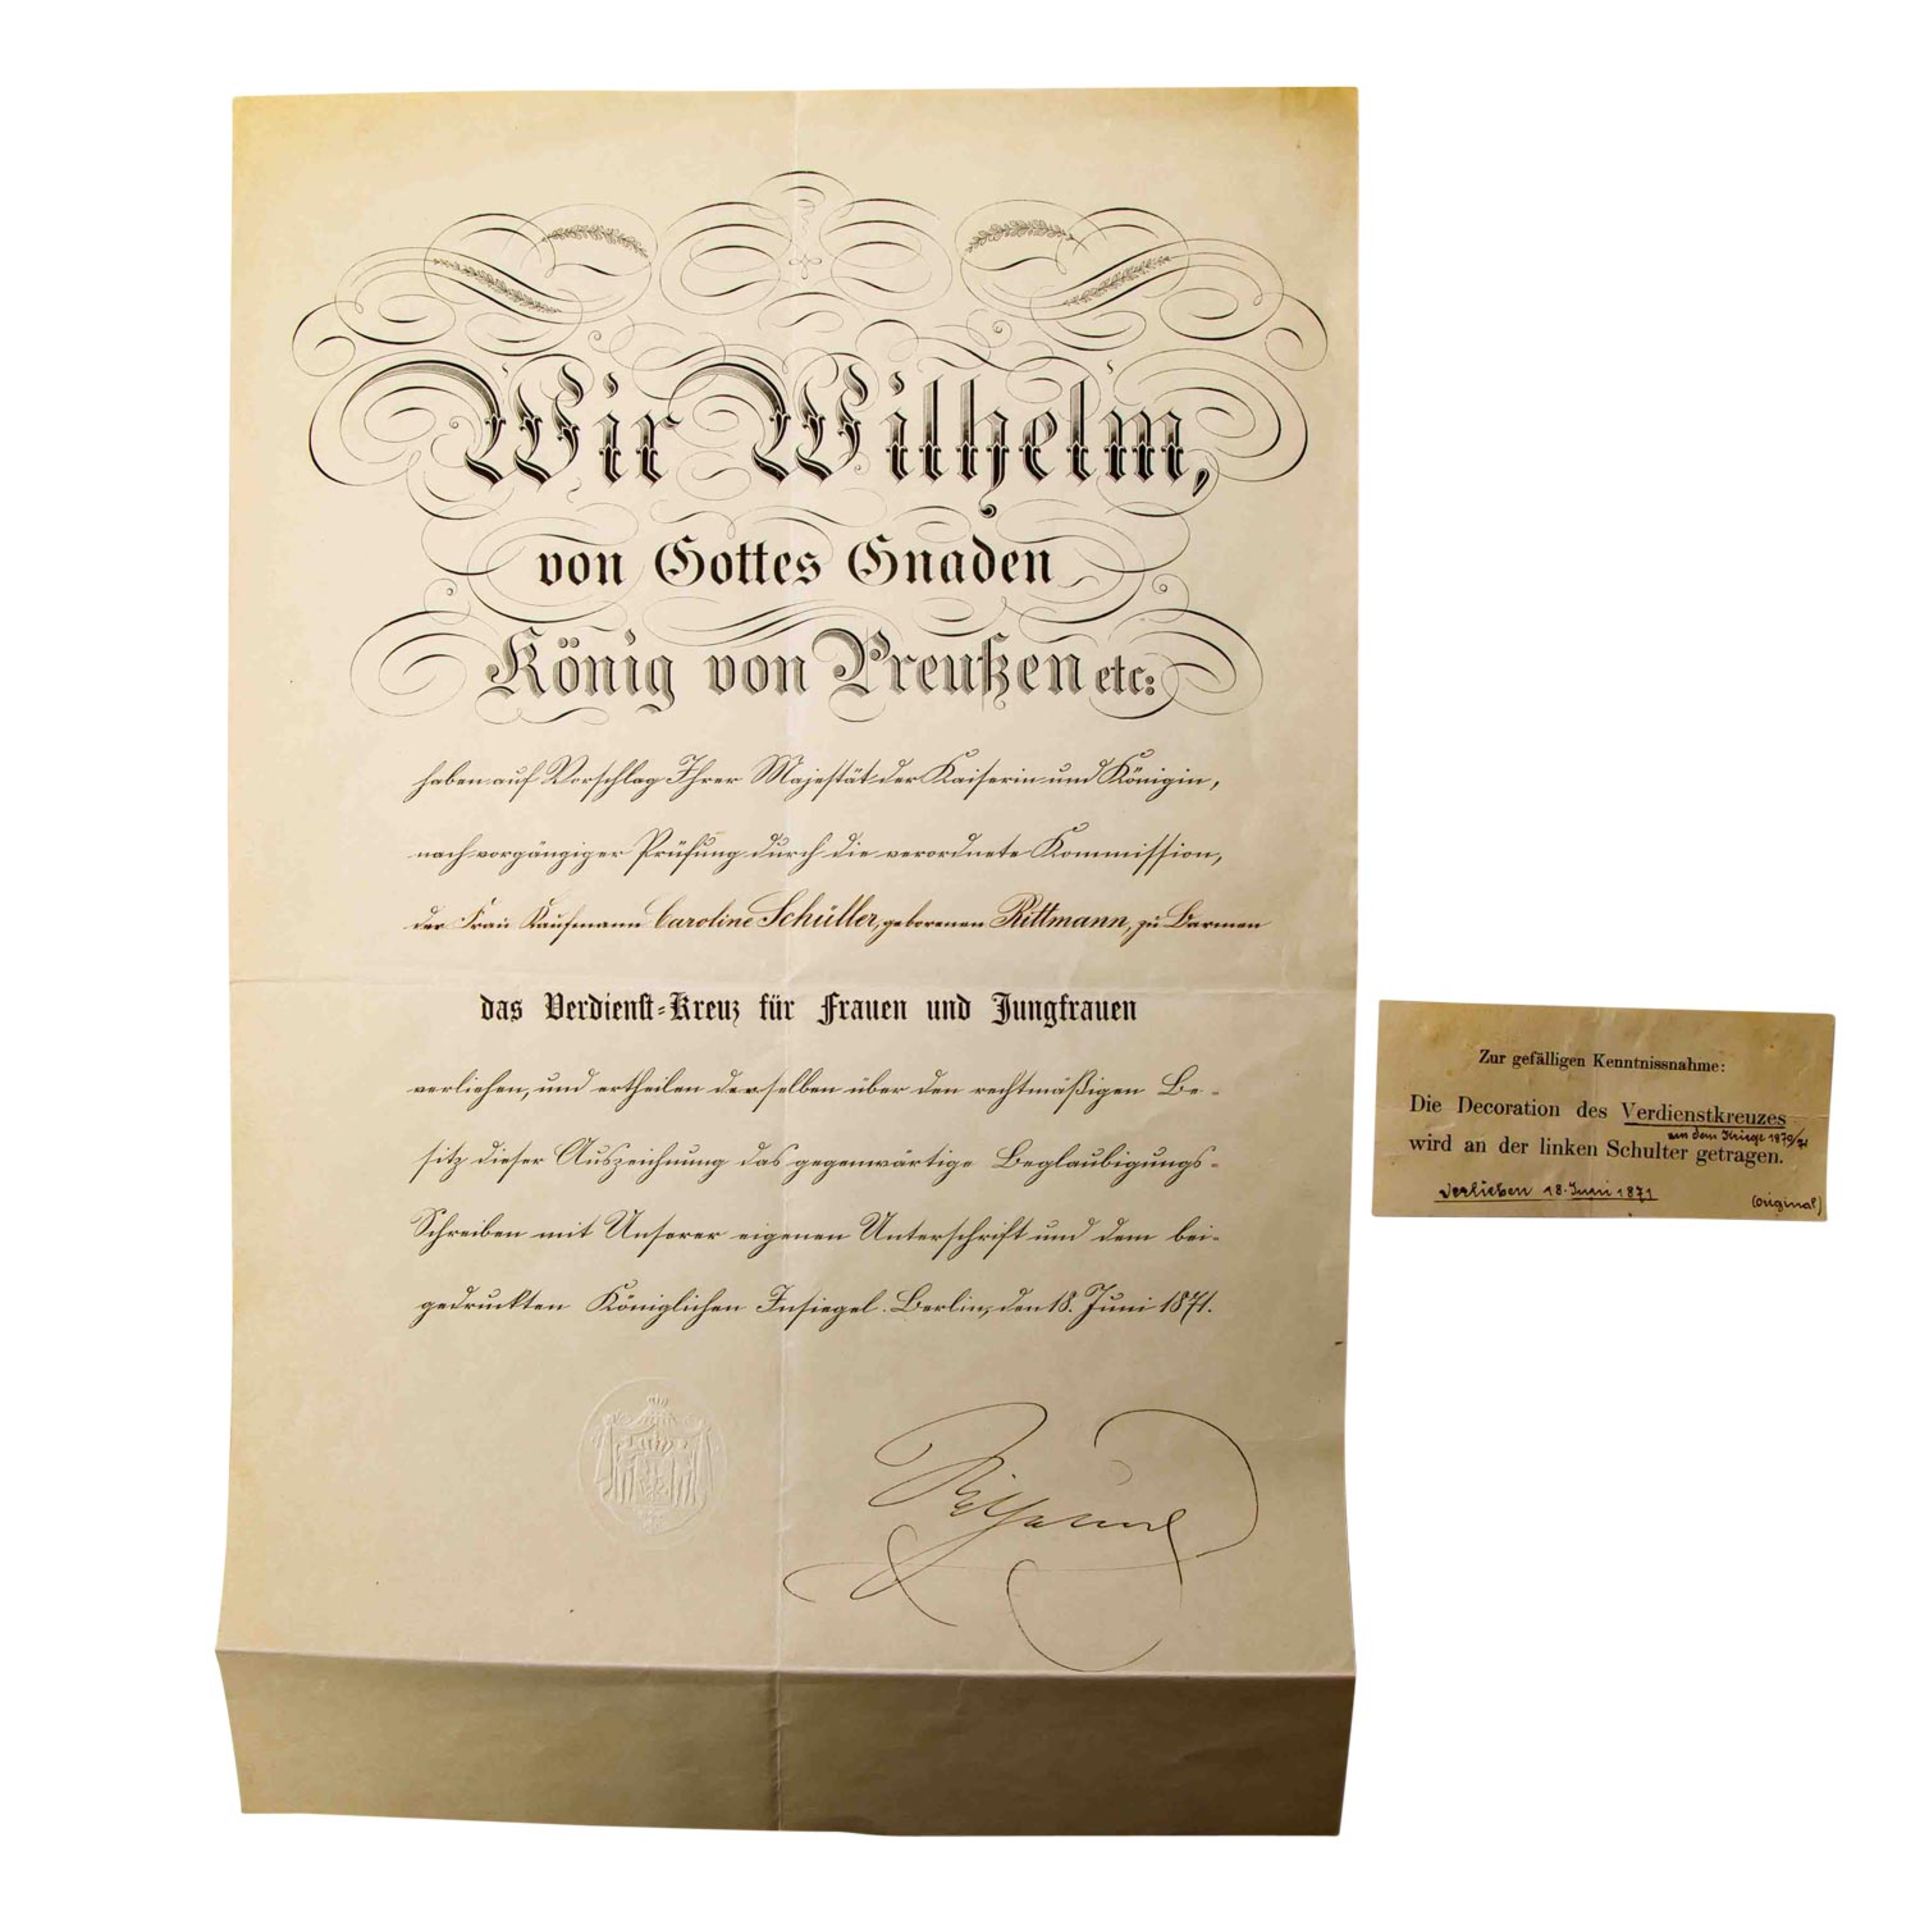 Wir Wilhelm,
von Gottes Gnaden
König von Preußen etc:
haben auf Vorschlag Ihrer Majestät der Kaiserin und Königin,
nach vorgängiger Prüfung durch die verordnete Kommission,
der Frau Kaufmann Caroline Schüller, geborenen Rittmann, zu Barmen
das Verdienst-Kreuz für Frauen und Jungfrauen
verliehen, und ertheilen derselben über den rechtmäßigen Be-
sitz dieser Auszeichnung das gegenwärtige Beglaubigungs-
Schreiben mit Unserer eigenen Unterschrift und dem bei-
gedruckten Königlichen Insiegel. Berlin, den 18. Juni 1871.
Wilhelm
Zur gefälligen Kenntnissnahme:
Die Decoration des Verdienstkreuzes
aus dem Kriege 1870/71
wird an der linken Schulter getragen.
Verliehen 18. Juni 1871
(Original)